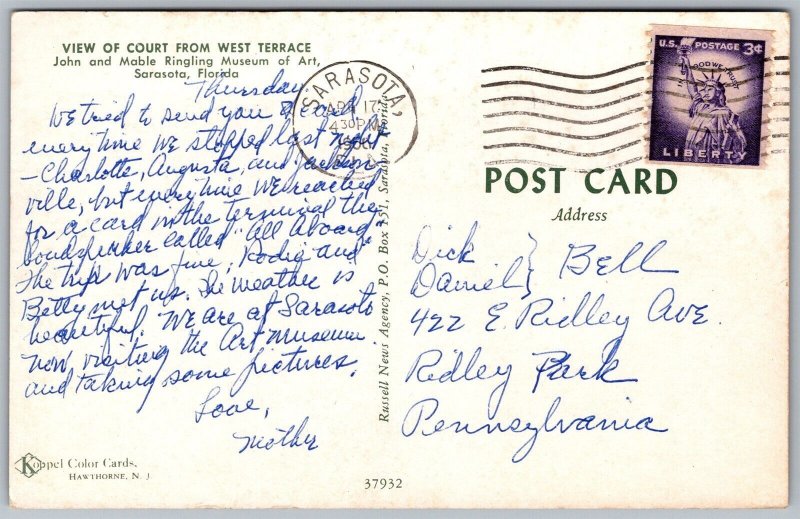 VIEW OF COURT FROM WEST TERRACE
John and Mable Ringling Museum of Art,
Sarasota, Florida
Thursday
We tried to send you a card
everytime we stopped last night
- Charlotte, Augusta, and Jackson-
ville, but everytime we reached
for a card in the terminal the
loudspeaker called "all aboard"
The trip was fine, and
Betty met us. The weather is
beautiful. We are at Sarasota
now visiting the Art Museum
and taking some pictures.
Love,
Mother
Koppel Color Cards,
HAWTHORNE, N. J.
37932
Russell News Agency, P.O. Box 751, Sarasota, Florida
SARASOTA,
APR 17
430 PM
U.S. POSTAGE 3¢
IN GOD WE TRUST
LIBERTY
POST CARD
Address
Dick
Daniel } Bell
422 E. Ridley Ave.
Ridley Park
Pennsylvania